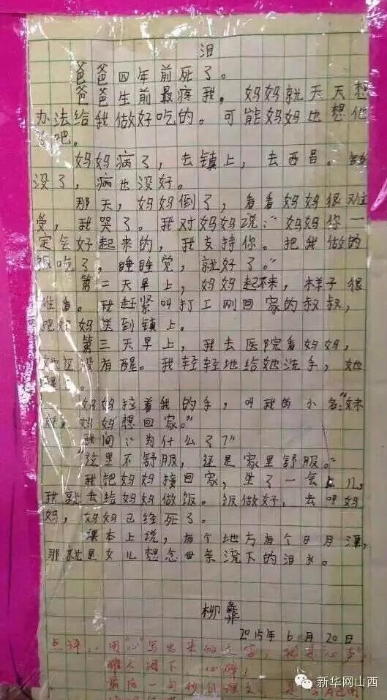 泪
爸爸四年前死了。
爸爸生前最疼我。妈妈就天天想
办法给我做好吃的。可能妈妈也想他
吧。
妈妈病了,去镇上,去西昌。钱
没了,病也没好。
那天,妈妈倒了,看看妈妈很难
受,我哭了。我对妈妈说:“妈妈你一
定会好起来的,我支持你。把我做的
饭吃了,睡睡觉,就好了。”
第二天早上,妈妈起不来,样子很
难看。我赶紧叫打工刚回家的叔叔,
把妈妈送到镇上。
第三天早上,我去医院看妈妈,
她还没有醒。我轻轻地给她洗手,她
醒了。
妈妈拉着我的手,叫我的小名:“妹
妹,妈妈想回家。”
我问:“为什么了?”
“这里不舒服,还是家里舒服。”
我把妈妈接回家,坐了一会儿,
我就去给妈妈做饭。饭做好,去叫妈
妈,妈妈已经死了。
课本上说,有个地方有个日月潭,
那就是女儿想念母亲流下的泪水。
柳彝
2015年6月20日
新华网山西